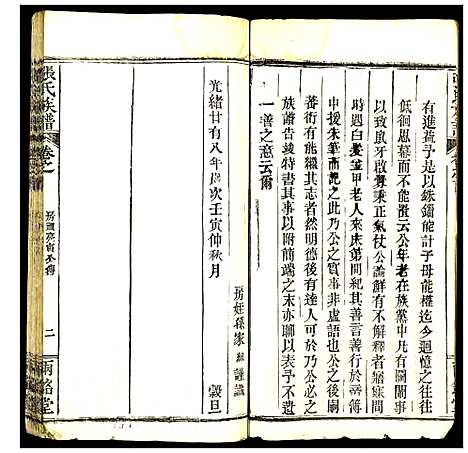 有進益予是以錙鑄能計子母能權迄今迴憶之往往
低徊思慕而不能置云公年老在族黨中凡有閱閙事
以致鼠牙雀釁秉正氣仗公論鮮有不解者寤寐間
時遇白髮筆甲老人來床第間紀其善言善行於冊
中援朱筆而記之此乃公之實事非虛語也公之後嗣
蕃衍有能繼其志者然明德後有達人可於乃公必之
族譜告竣特書其事以附簡端之末亦聊以表予不遺
一善之意云爾
光緒廿有八年歲次壬寅仲秋月
穀旦
房姪孫家 謹識
張氏族譜
卷之
二
雨銘堂